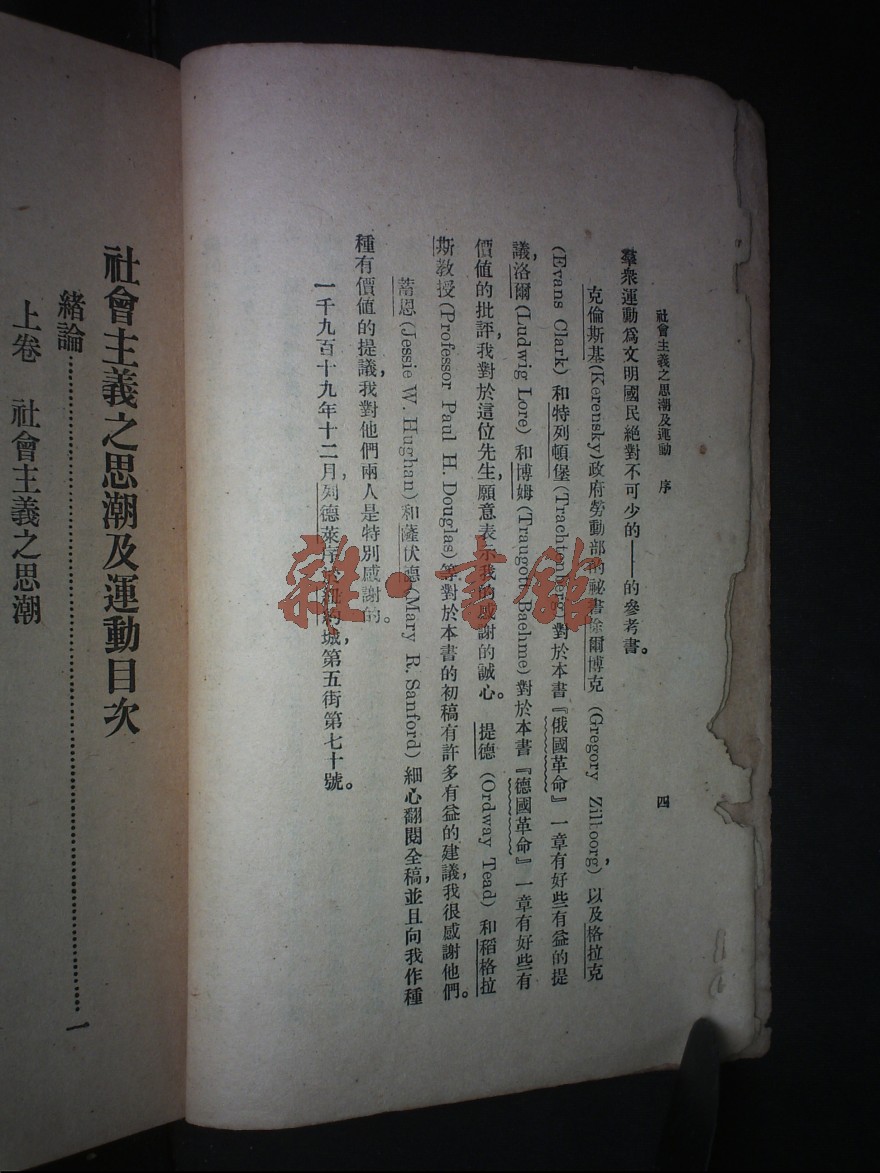 社會主義之思潮及運動 序 四
羣衆運動爲文明國民絕對不可少的——的參考書。
克倫斯基(Kerensky)政府勞動部的祕書徐爾博克 (Gregory Zilboorg), 以及格拉克
(Evans Clark) 和特列頓堡(Trachtenberg) 對於本書『俄國革命』一章有好些有益的提
議,洛爾(Ludwig Lore) 和博姆(Traugott Baehme) 對於本書『德國革命』一章有好些有
價值的批評,我對於這位先生,願意表示我的感謝的誠心。 提德 (Ordway Tead) 和稻格拉
斯教授(Professor Paul H. Douglas)等對於本書的初稿有許多有益的建議,我很感謝他們。
蓄恩(Jessie W. Hughan)和薩伏德(Mary R. Sanford) 細心翻閱全稿,並且向我作種
種有價值的提議,我對他們兩人是特別感謝的。
一千九百十九年十二月,列德萊序於紐約城,第五街第七十號。
社會主義之思潮及運動目次
緒論……………………………………一
上卷 社會主義之思潮
雜·書館